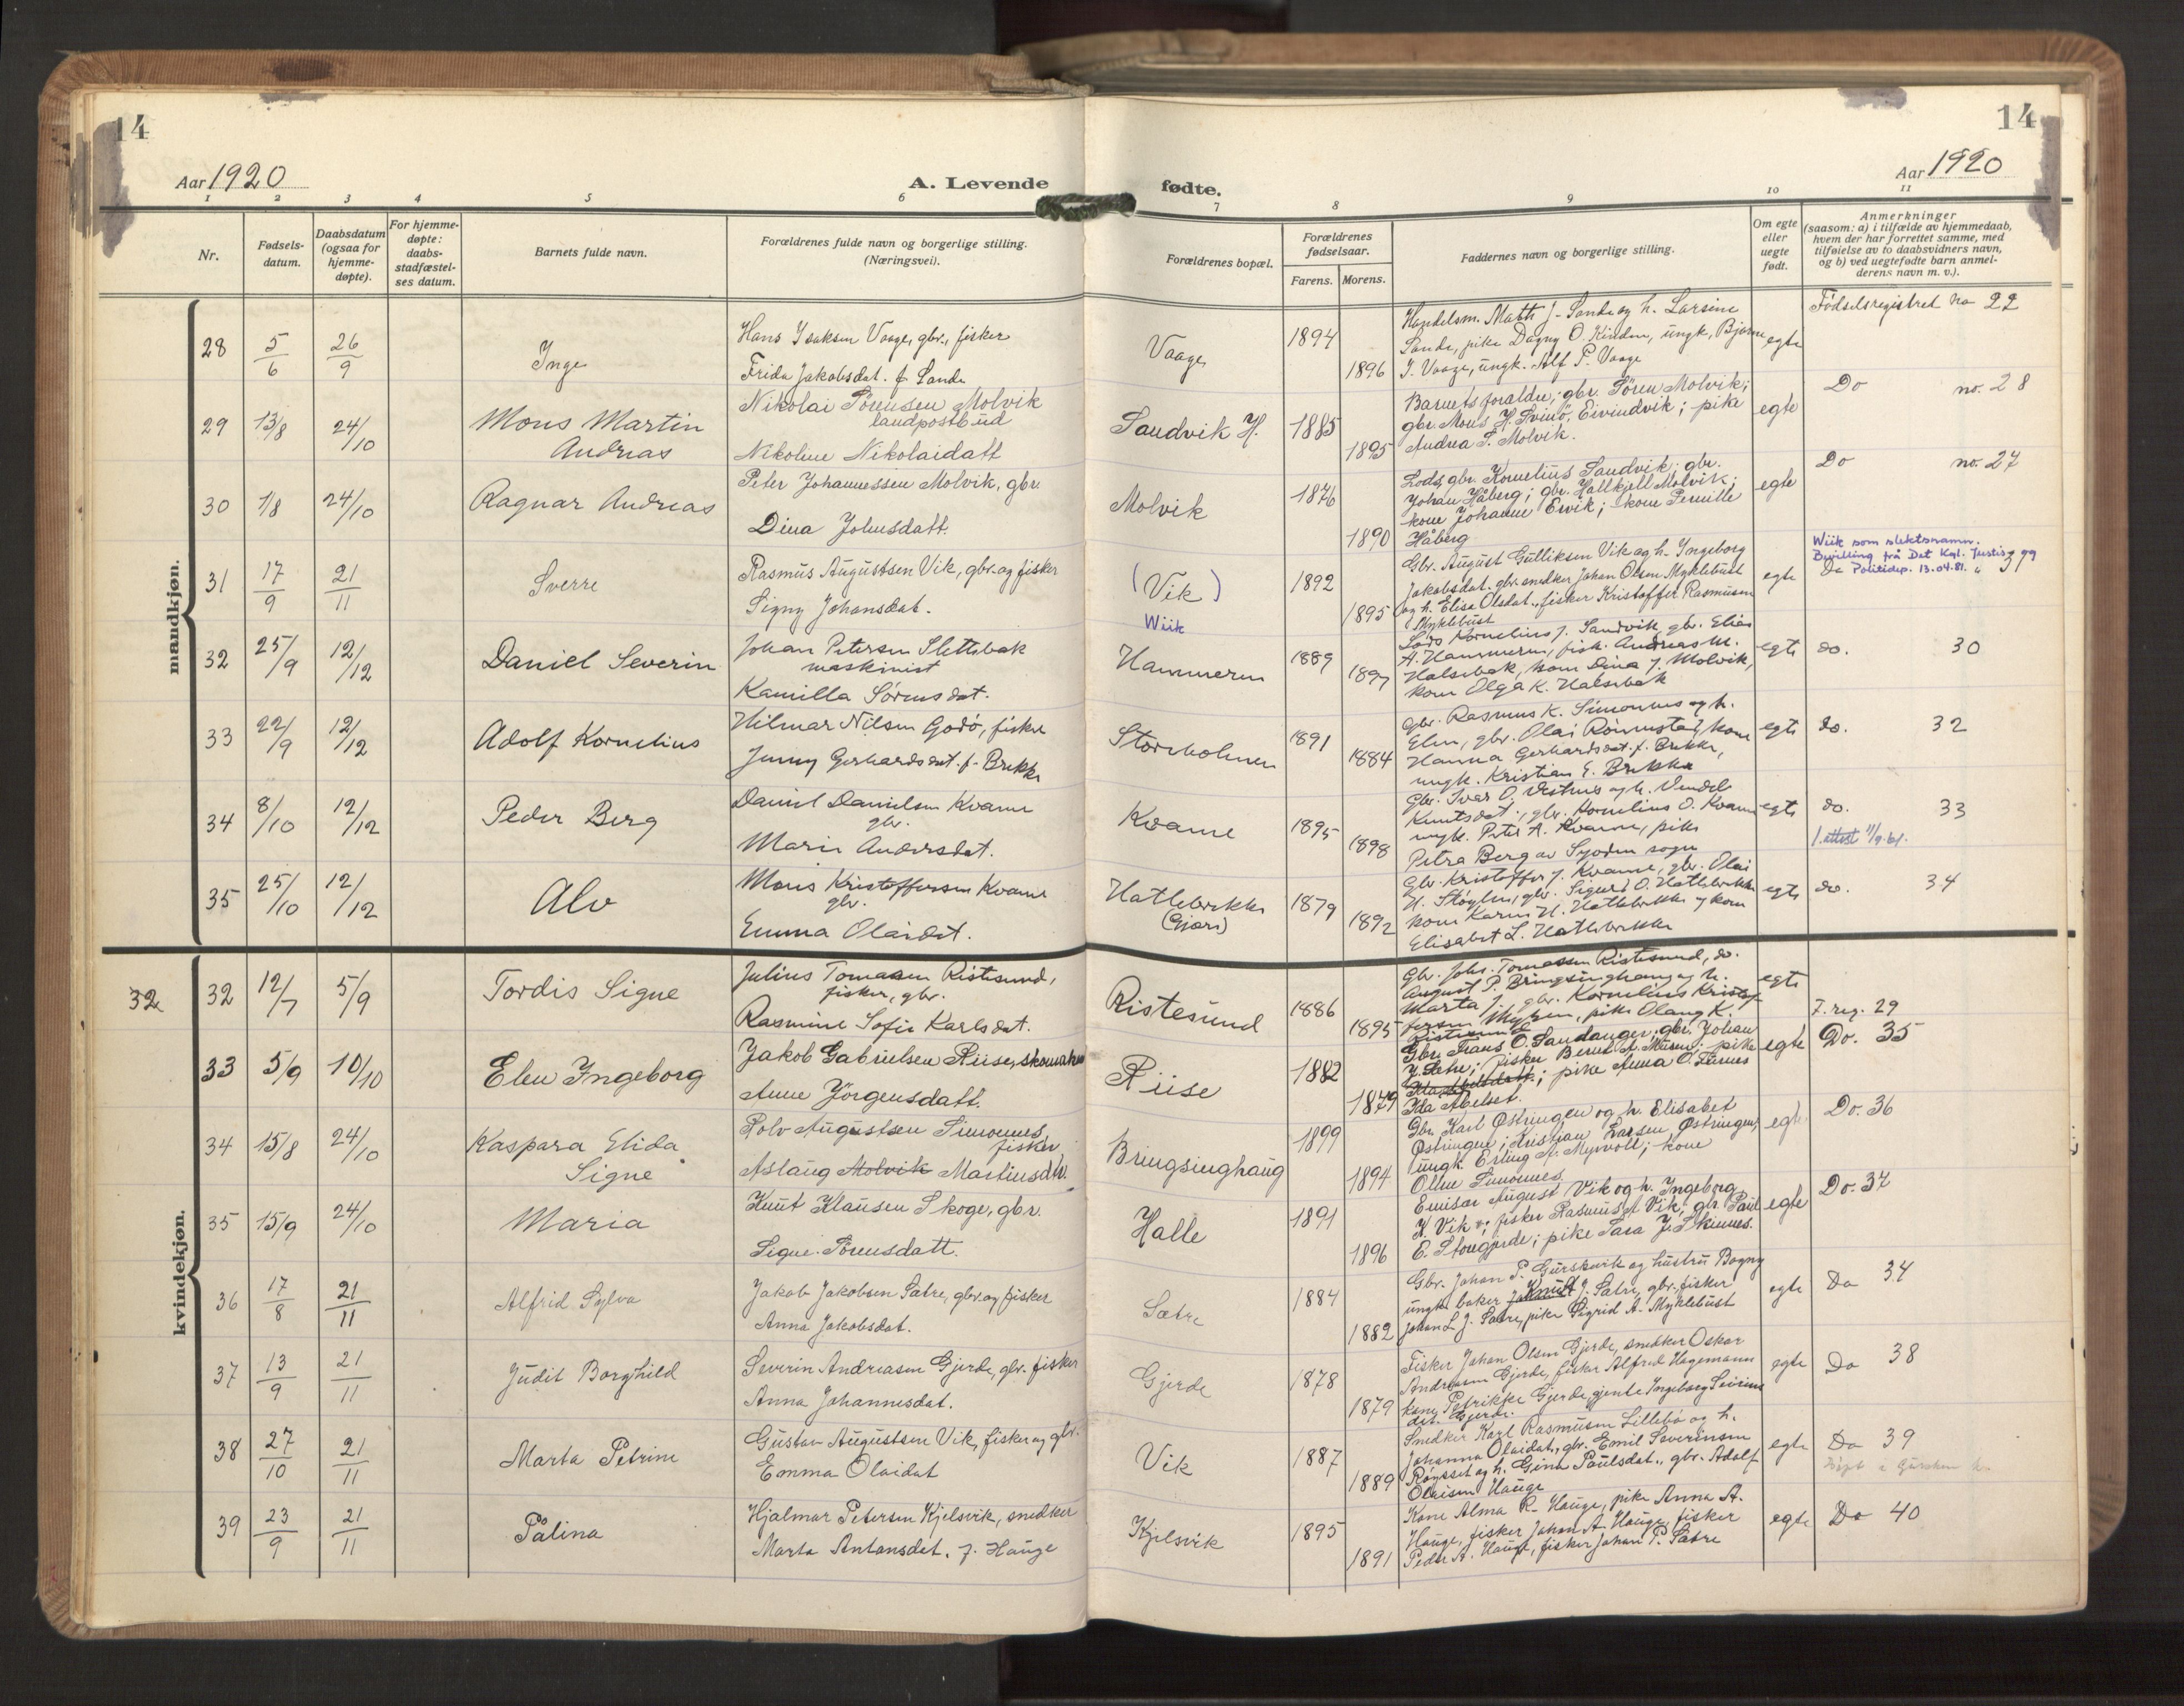 14
14
Aar 1920
A. Levende
fødte.
Aar 1920
1 2 3 4 5 6 7 8 9 10 11
Nr.
Fødsels-
datum.
Daabsdatum
(ogsaa for
hjemme-
døpte).
For hjemme-
døpte:
daabs-
stadfæstel-
ses datum.
Barnets fulde navn.
Forældrenes fulde navn og borgerlige stilling.
(Næringsvei).
Forældrenes bopæl.
Forældrenes
fødselsaar.
Farens. Morens.
Faddernes navn og borgerlige stilling.
Om egte
eller
uegte
født.
Anmerkninger
(saasom: a) i tilfælde av hjemmedaab,
hvem der har forrettet samme, med
tilføielse av to daabsvidners navn,
og b) ved uegtefødte barn anmel-
derens navn m. v.).
mandkjøn.
28 5/6 26/9 Inge
Hans Isaksen Vaage, gbr., fisker
Frida Jakobsdat. f. Sande
Vaage 1894 1896
Handelsm. Math J. Sande og h. Larsine
Sande, pike Dagny O. Kinden, ungk, Bjarne
I. Vaage, ungk. Alf P. Vaage
egte
Fødselsregistret no 22
29 13/8 24/10 Mons Martin
Andreas
Nikolai Sörensen Molvik
landpostbud
Nikoline Nikolaidatt
Sandvik H. 1885 1895
Barnets foraldre; gbr. Sören Molvik;
gbr. Mons H. Svinö, Eivindvik; pike
Andrea S. Molvik.
egte
Do no. 28
30 1/8 24/10 Ragnar Andreas
Peter Johannessen Molvik, gbr.
Dina Johnsdatt.
Molvik 1876 1890
Lods, gbr. Kornelius Sandvik; gbr.
Johan Håberg; gbr. Hallkjell Molvik;
kone Johanne Ervik; kone Pernille
Håberg
egte
Do no. 27
31 17/9 21/11 Sverre
Rasmus Augustsen Vik, gbr. og fisker
Signy Johansdat.
(Vik)
Wiik
1892 1895
Gbr. August Gulliksen Vik og h. Ingeborg
Jakobsdat. gbr. snedker Johan Olsen Myklebust
og h. Elise Olsdat., fisker Kristoffer Rasmusen
Myklebust
egte
Wiik som slektsnamn.
Bevilling frå Det Kgl. Justis og
Politidep. 13.04.81.
Do
32 25/9 12/12 Daniel Severin
Johan Petersen Slettebak
maskinist
Kamilla Sörensdat.
Hammeren 1889 1897
Lods Kornelius J. Sandvik, gbr. Elias
A. Hammeren, fisk. Andreas M.
Halsebak, kone Dina J. Molvik,
kone Olga K. Halsebak
egte
do. 30
33 22/9 12/12 Adolf Kornelius
Hilmar Nilsen Godö, fisker
Jenny Gerhardsdat. f. Brekke
Storeholmen 1891 1884
gbr. Rasmus K. Simonnes og h.
Elen, gbr. Olai Rönnestad, kone
Hanna Gerhardsdat. f. Brekke,
ungk. Kristian E. Brekke
egte
do. 32
34 8/10 12/12 Peder Berg
Daniel Danielsen Kvame
gbr.
Marie Andersdat.
Kvame 1895 1898
Gbr. Ivar O. Vestnes og h. Vendel
Knutsdat., gbr. Kornelius O. Kvame
ungk. Peter A. Kvame, pike
Petra Berg av Syvden sogn
egte
do. 33
1. attest 11/9-61.
35 25/10 12/12 Alv
Mons Kristoffersen Kvame
gbr.
Emma Olaidat.
Hatlebrekke
1879 1892
Gbr. Kristoffer J. Kvame, gbr. Olai
H. Stöylen, gbr. Sigurd O. Hatlebrekke
kone Karen H. Hatlebrekke og kone
Elisabet L. Hatlebrekke
egte
do. 34
kvindekjøn.
32 32 12/7 5/9 Tordis Signe
Julius Tomassen Ristesund,
fisker, gbr.
Rasmine Sofie Karlsdat.
Ristesund 1886 1895
Gbr. Johs. Tomassen Ristesund, do.
August P. Bringsinghaug og h.
Marta J., gbr. Kornelius Kristof-
fersen Myren, pike Olaug K.
Ristesund
egte
F. reg. 29
33 5/9 10/10 Elen Ingeborg
Jakob Gabrielsen Riise, skomaker
Anne Jörgensdatt.
Riise 1882 1879
Gbr. Frans O. Sandanger; gbr. Johan
J. Sætre; fisker Bernt A. Muren; pike
Ida Abelset.; pike Anna O. Furnes
egte
Do. 35
34 15/8 24/10 Kaspara Elida
Signe
Rolv Augustsen Simonnes,
fisker
Aslaug Molvik Martinsdtr.
Bringsinghaug 1899 1894
Gbr. Karl Østringen og h. Elisabet
Østringen; Kristian Larsen Østringen,
ungk. Erling A. Myrvoll; kone
Oline Simonnes
egte
Do. 36
35 15/9 24/10 Maria
Knut Klausen Skoge, gbr.
Signe Sörensdatt.
Halle 1891 1896
Emisær August Vik og h. Ingeborg
K. Vik; fisker Rasmus A. Vik; gbr. Paul
E. Storegjerde; pike Sara J. Skinnes.
egte
Do. 37
36 17/8 21/11 Alfrid Sylva
Jakob Jakobsen Sætre, gbr. og fisker
Anna Jakobsdat.
Sætre 1884 1882
Gbr. Johan P. Gurskevik og hustru Bagny
ungk. baker Knut J. Sætre, gbr. fisker
Johan L. J. Sætre, pike Sigrid A. Myklebust
egte
Do 34
37 13/9 21/11 Judit Borghild
Severin Andreasen Gjerde, gbr. fisker
Anna Johannesdat.
Gjerde 1878 1879
Fisker Johan Olsen Gjerde, snedker Oskar
Andreasen Gjerde, fisker Alfred Hagemann
kone Petrikke Gjerde, gjente Ingeborg Severins
dat. Gjerde.
egte
Do 38
38 27/10 21/11 Marta Petrine
Gustav Augustsen Vik, fisker og gbr.
Emma Olaidat
Vik 1887 1889
Snedker Karl Rasmusen Lillebö og h.
Johanna Olaidat., gbr. Emil Severinsen
Röysset og h. Gina Paulsdat., gbr. Adolf
Olaisen Hauge
egte
Do 39
39 23/9 21/11 Pålina
Hjalmar Petersen Kjelsvik, snedker
Marta Antonsdat. f. Hauge
Kjelsvik 1895 1891
Kone Alma R. Hauge, pike Anna A.
Hauge, fisker Johan A. Hauge, fisker
Peder A. Hauge, fisker Johan P. Sætre
egte
Do 40